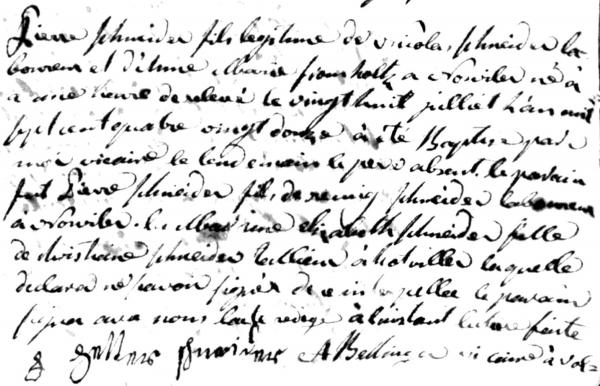 Pierre schneider fils legitime de nicolas schneider la-
boureur et d'Anne Marie fromholtz a Nowiler né à
a une heure de relevé le vingt huit juilliet L'an mil
sept cent quatre vingt douze à été Baptisé par
moi vicaire le lendemain le pere absent, le parain
fut Pierre schneider fils de remig schneider laboureur
à Nowiler. la Mareine elisabeth schneider fille
de christiane schneider tallieur à hotviller laquelle
declara ne savoir signer de ce interpellee le parain
signa avec nous l'acte redigé à l'instant lecture faite
schneider A Belling vicaire à vol-